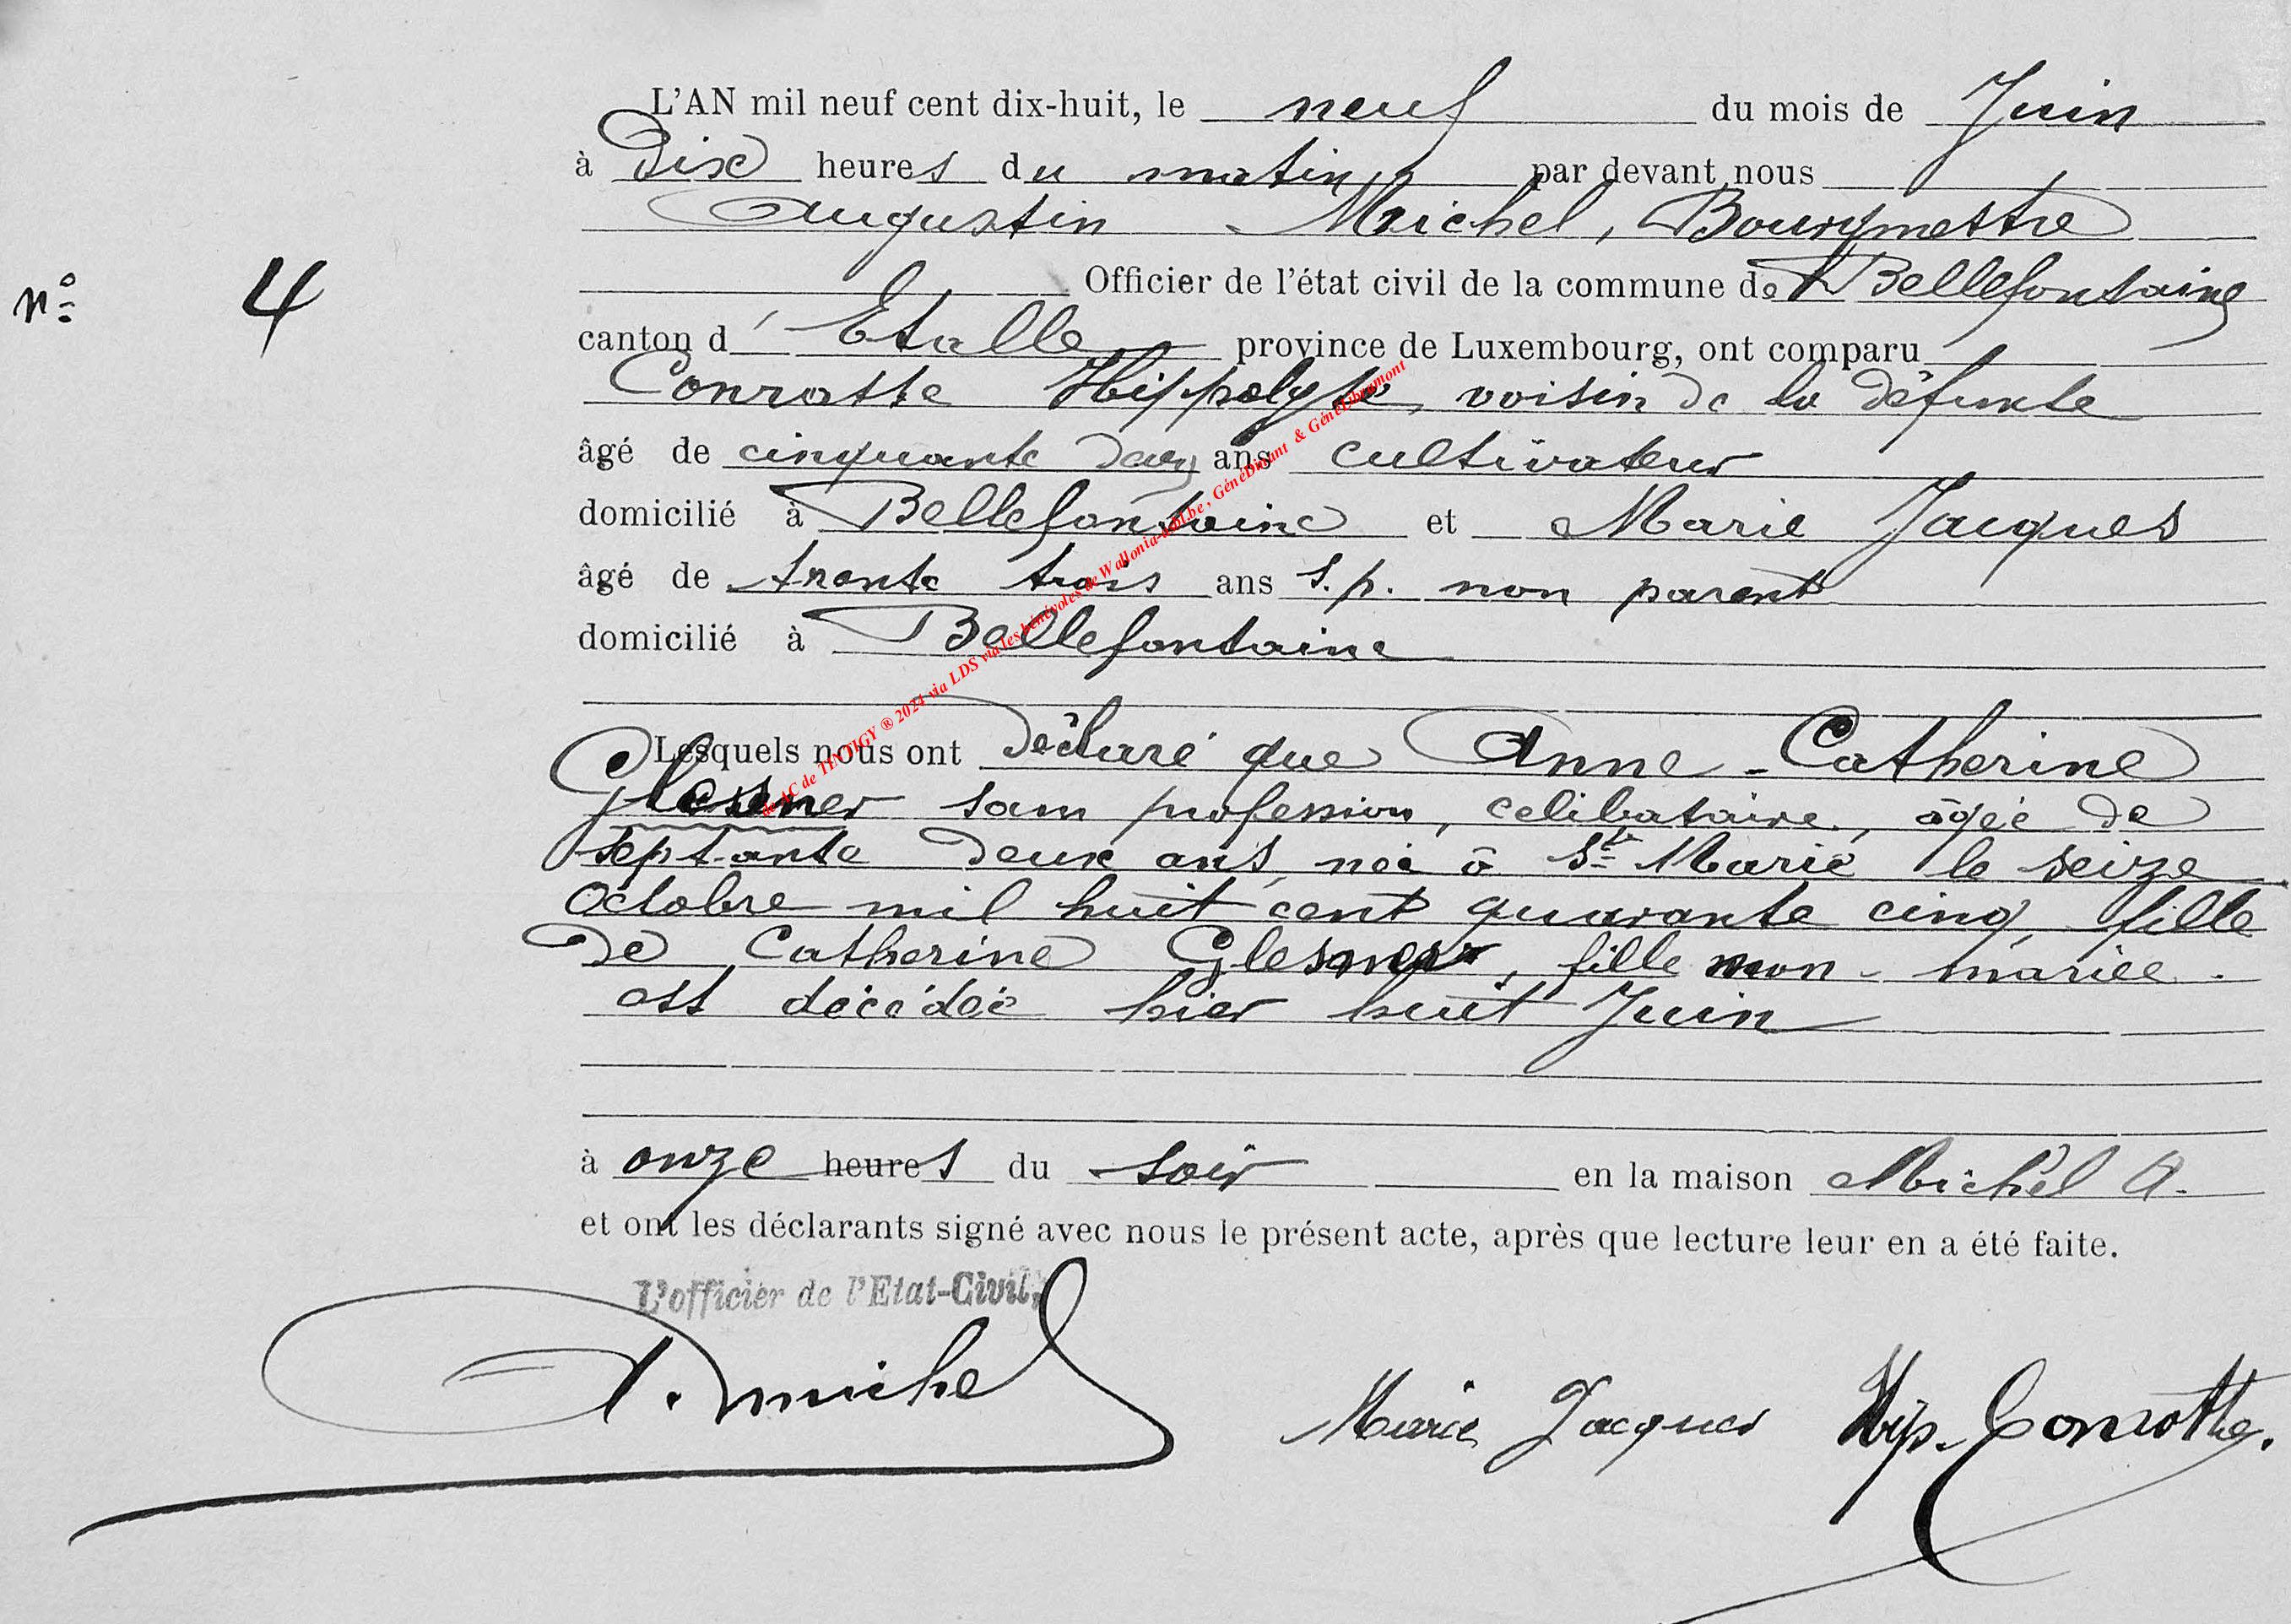 L'AN mil neuf cent dix-huit, le neuf du mois de Juin
à Dix heures du matin par devant nous
Augustin Michel, Bourgmestre
n° 4
Officier de l'état civil de la commune de Bellefontaine
canton d' Etalle province de Luxembourg, ont comparu
Conrotte Hippolyte, voisin de la défunte
âgé de cinquante deux ans cultivateur
domicilié à Bellefontaine et Marie Jacques
âgé de trente trois ans s.p. non parent
domicilié à Bellefontaine
Lesquels nous ont déclaré que Anne-Catherine
Glesner sans profession, celibataire, âgée de
septante deux ans, née à Ste Marie le seize
Octobre mil huit cent quarante cinq, fille
de Catherine Glesner, fille non-mariée.
est décédée hier huit Juin
à onze heures du soir en la maison Michel A.
et ont les déclarants signé avec nous le présent acte, après que lecture leur en a été faite.
L'officier de l'Etat-Civil,
A. Michel
Marie Jacques Hip. Conrotte.
de AC de TINTIGY ® 2024 via LDS via les bénévoles de Wallonia-asbl.be, GénéDinant & GénéLibramont